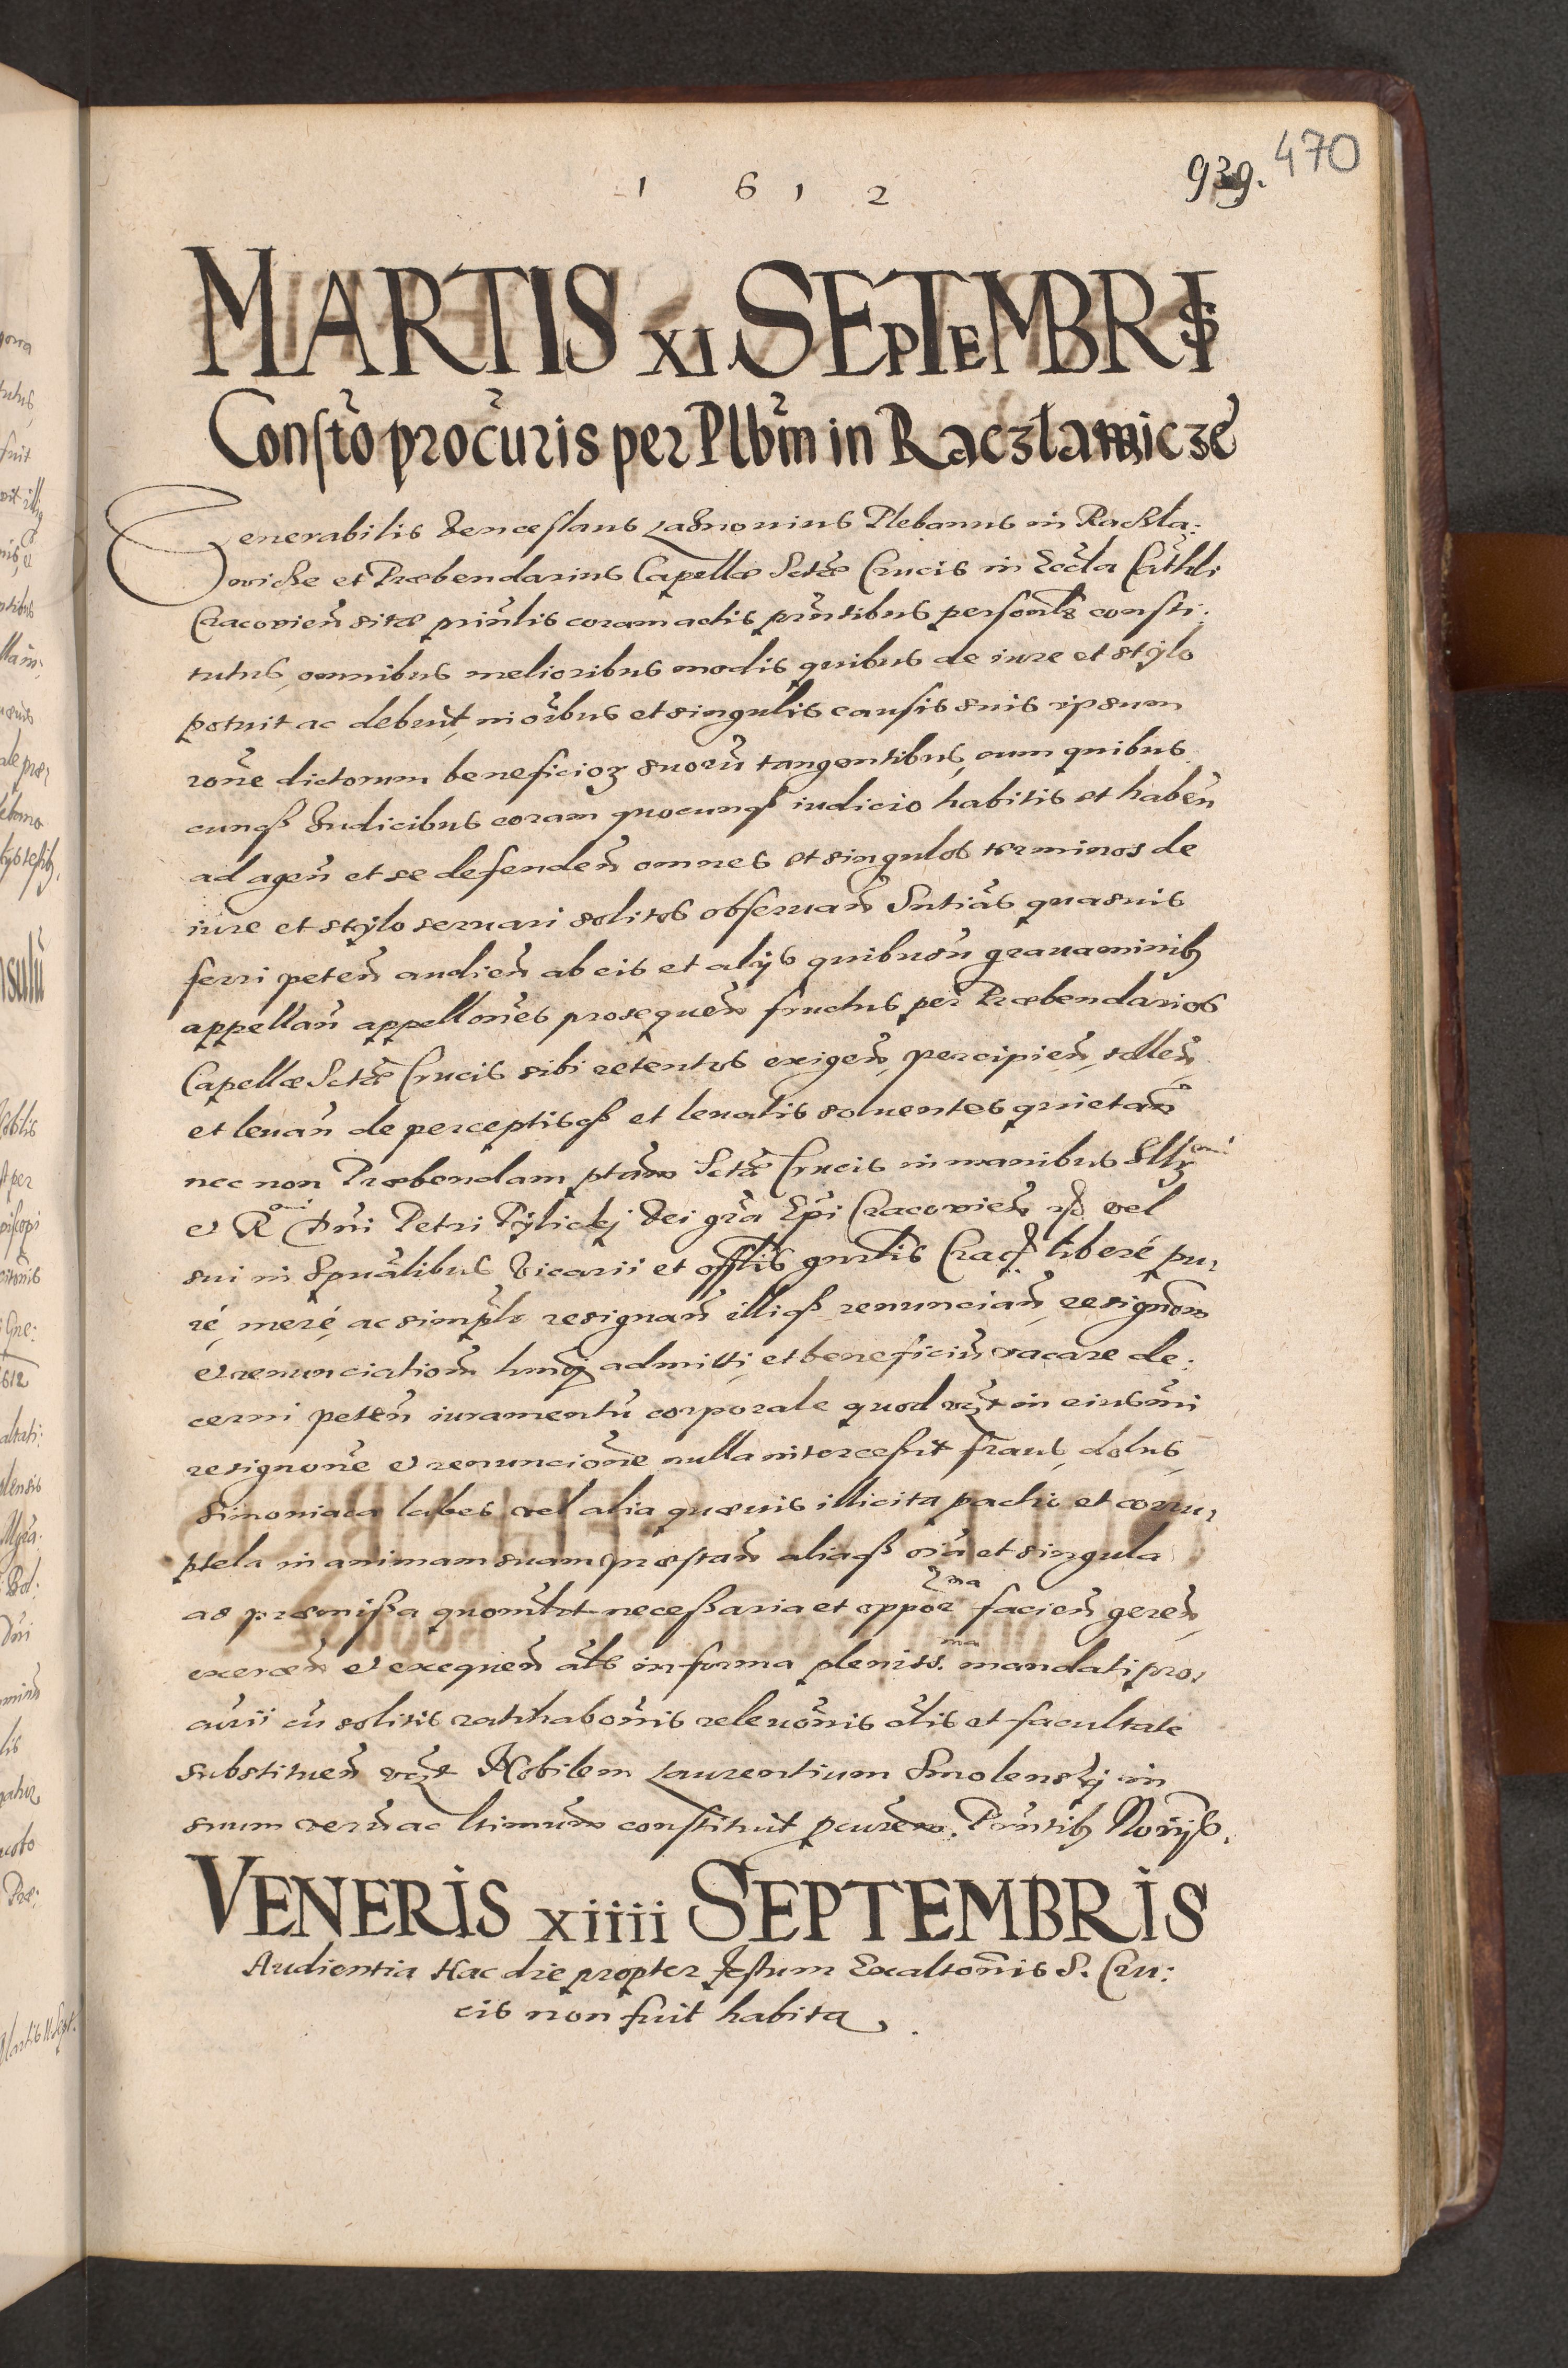 1612
939. 470
MARTIS XI SEPTEMBRIS
Consto procuris per Plbm in Raczlawicze
Venerabilis Venceslaus Lagnovius Plebanus in Raczla:
wicze et Præbendarius Capellæ Sctæ Crucis in Eccla Cathli
Cracovien sitæ prinlis coram actis prntibus personls consti:
tutus, omnibus melioribus modis quibus de iure et stylo
potuit ac debuit, in oibus et singulis causis suis ipsum
rone dictorum beneficioꝝ suorū tangentibus, cum quibus
cunqȝ Iudicibus coram quocunqȝ iudicio habitis et haben
ad agen et se defenden omnes et singulos terminos de
iure et stylo servari solitos observan Sntias quasvis
ferri peten audien ab eis et alijs quibusn gravaminibȝ
appellan appellones prosequen fructus per Præbendarios
Capellæ Sctæ Crucis sibi retentos exigen, percipien, tollen
et levan de perceptisqȝ et levatis solventes quietan
nec non Præbendam ptam Sctæ Crucis in manibus Illr
et R Dni Petri Tylickj Dei gra Epi Cracovien vel
sui in Spualibus Vicarii et offlis gnrlis Crac liberé pu,
ré, meré, ac simplr resignan illiqȝ renuncian, resignom
et renunciationem hmoi admitti et beneficiū vacare de:
cerni peten iuramentū corporale quod in eiusmi
resignone et renuncione nulla intercessit fraus, dolus,
simoniaca labes vel alia quævis illicita pactio et corru,
ptela in animam suam præstan aliaqȝ oia et singula
ad præmissa quomlbt necessaria et oppor ma facien geren,
exercen et exequen als in forma pleniss. ma mandati pro,
curii cū solitis ratihabonis relevonis clis et facultate
substituen Nobilem Laurentium Smolenskj in
suum verū ac ltimum constituit pcurem. Prntibȝ Norijs.
VENERIS xiiii SEPTEMBRIS
Audientia Hac die propter festum Exaltonis S. Cru:
cis non fuit habita.